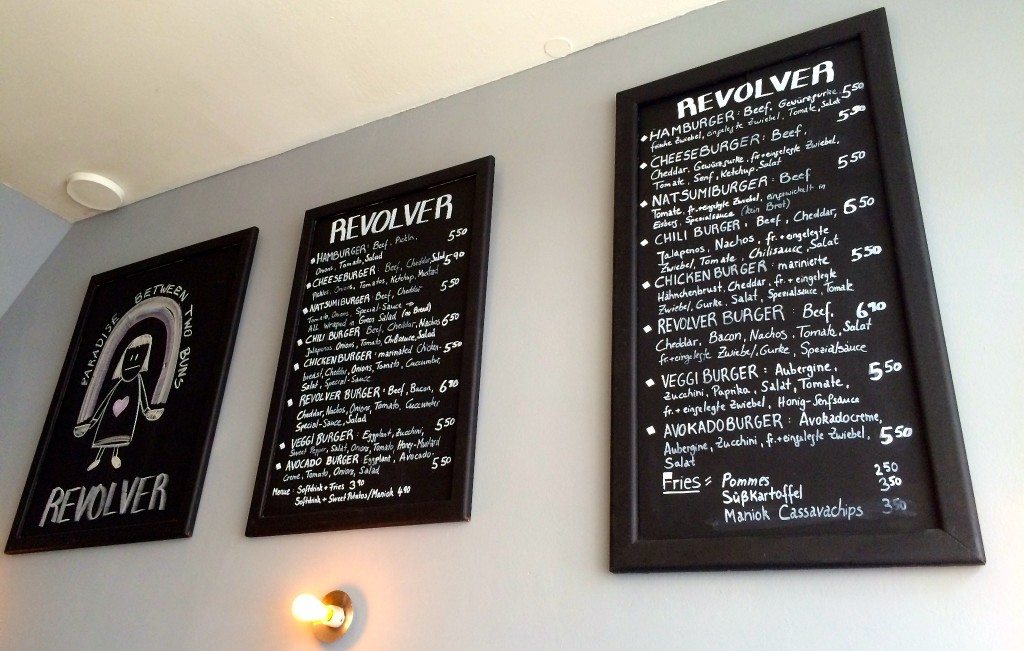 PARADISE BETWEEN TWO BUNS
REVOLVER
REVOLVER
HAMBURGER: Beef, Pickle, 5,50
Onions, Tomato, Salad
CHEESEBURGER: Beef, Cheddar, Salad 5,90
Pickles, Onions, Tomatos, Ketchup, Mustard
NATSUMIBURGER: Beef, Cheddar 5,50
Tomato, Onions, Special-Sauce
All Wrapped in Green Salad (no Bread)
CHILI BURGER Beef, Cheddar, Nachos 6,50
Jalapenos, Onions, Tomato, Chilisauce, Salad
CHICKEN BURGER: marinated Chicken- 5,50
breast, Cheddar, Onions, Tomato, Cuccumber
Salat, Special-Sauce
REVOLVER BURGER: Beef, Bacon, 6,90
Cheddar, Nachos, Onions, Tomato, Cuccumber
Special-Sauce, Salad
VEGGI BURGER: Eggplant, Zucchini, 5,50
Sweet Pepper, Salat, Onions, Tomato, Honey-Mustard
AVOCADO BURGER: Eggplant, Avocado- 5,50
Creme, Tomato, Onions, Salad
Menue: Softdrink + Fries 3,90
Softdrink + Sweet Potatos/Maniok 4,90
REVOLVER
HAMBURGER: Beef, Gewürzgurke 5,50
frische Zwiebel, eingelegte Zwiebel, Tomate, Salat
CHEESEBURGER: Beef, 5,50
Cheddar, Gewürzgurke, fr.+eingelegte Zwiebel,
Tomate, Senf, Ketchup, Salat
NATSUMIBURGER: Beef 5,50
Tomate, fr.+eingelegte Zwiebel, eingewickelt in
Eisberg, Spezialsauce (kein Brot)
CHILI BURGER, Beef, Cheddar, 6,50
Jalapenos, Nachos, fr.+eingelegte
Zwiebel, Tomate, Chilisauce, Salat
CHICKEN BURGER: marinierte 5,50
Hähnchenbrust, Cheddar, fr.+eingelegte
Zwiebel, Gurke, Salat, Spezialsauce, Tomate
REVOLVER BURGER: Beef, 6,90
Cheddar, Bacon, Nachos, Tomate, Salat
fr+eingelegte Zwiebel, Gurke, Spezialsäuce
VEGGI BURGER: Aubergine, 5,50
Zucchini, Paprika, Salat, Tomate,
fr.+eingelegte Zwiebel, Honig-Senfsauce
AVOKADOBURGER: Avokadocreme,
Aubergine, Zucchini, fr.+eingelegte Zwiebel, 5,50
Salat
Fries = Pommes 2,50
Süßkartoffel 3,50
Maniok Cassavachips 3,50